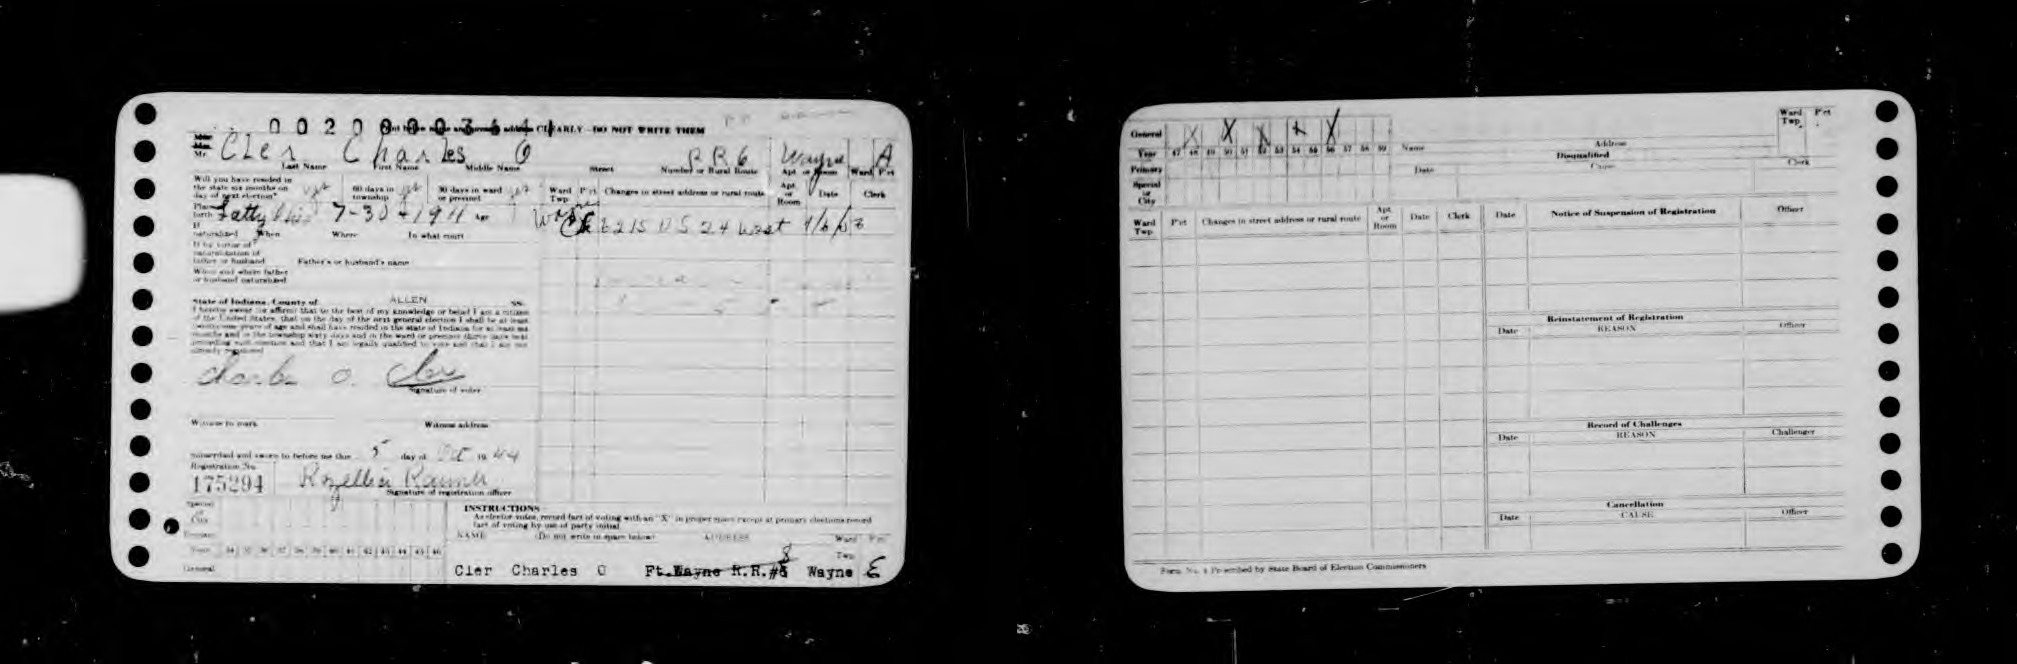 Print below name and present address CLEARLY—DO NOT WRITE THEM
Cler Charles O R R 6 Wayne A
Mr. Last Name First Name Middle Name Street Number or Rural Route Apt. or Room Ward P'ct
Will you have resided in
the state six months on yes 60 days in yes 30 days in ward yes
day of next election? township or precinct
Ward Twp. P'ct Changes to street address or rural route Apt. or Room Date Clerk
birth 7-30-1911 Age
6215 U S 24 West
If naturalized When Where In what court
If by virtue of
naturalization of
father or husband Father's or husband's name
When and where father
or husband naturalized
State of Indiana, County of ALLEN SS.
I hereby swear (or affirm) that to the best of my knowledge or belief I am a citizen
of the United States, that on the day of the next general election I shall be at least
twenty-one years of age and shall have resided in the state of Indiana for at least six
months and in the township sixty days and in the ward or precinct thirty days next
preceding such election and that I am legally qualified to vote and that I am not
already registered
Charles O. Cler
Signature of voter
Witness to mark Witness address
Subscribed and sworn to before me this 5 day of Oct 19 44
Registration No.
175294
Signature of registration officer
INSTRUCTIONS—
As elector votes, record fact of voting with an "X" in proper space except at primary elections record
fact of voting by use of party initial.
NAME (Do not write in space below) ADDRESS Ward Twp P'ct
Special or City
Primary
Years 34 35 36 37 38 39 40 41 42 43 44 45 46
General
Cler Charles O Ft. Wayne R.R.# 8 Wayne E
General X X X X X
Year 47 48 49 50 51 52 53 54 55 56 57 58 59
Primary
Special or City
Name Address Ward Twp. P'ct
Disqualified
Date Cause Clerk
Ward Twp. P'ct Changes to street address or rural route Apt. or Room Date Clerk
Date Notice of Suspension of Registration Officer
Reinstatement of Registration
Date REASON Officer
Record of Challenges
Date REASON Challenger
Cancellation
Date CAUSE Officer
Form No. 4 Prescribed by State Board of Election Commissioners